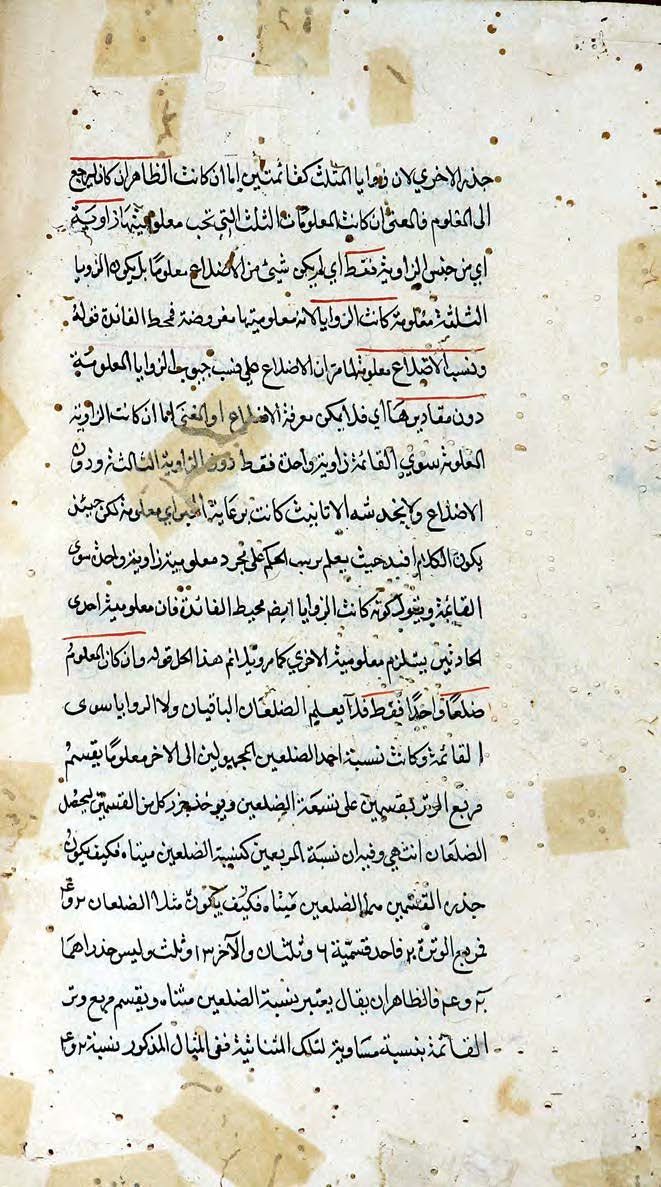 جذر الاخري لان زوايا المثلث كقائمتين اما ان كانت الظاهر ان كان ليرجع
الى المعلوم فالمعنى ان كانت المعلومات الثلث التي يجب معلوميتها زاوية
اي من جنس الزاوية فقط اي لم يكن شيئ من الاضلاع معلوما بل يكون الزوايا
الثلثة معلومة كانت الزوايا لانه معلوميتها مفروضة فمحط الفائدة قوله
ونسب الاضلاع معلومة لما مر ان الاضلاع على نسب جيوب الزوايا المعلومة
دون مقاديرها اي فلا يمكن معرفة الاضلاع او المعنى اما ان كانت الزاوية
المعلومة سوي القائمة زاوية واحدة فقط دون الزاوية الثالثة ودون
الاضلاع ولا يخدشه الا تانيث كانت برعاية الخبر اي معلومة لكن حينئذ
يكون الكلام افيد حيث يعلم ترتب الحكم على مجرد معلومية زاوية واحدة سوى
القايمة ويقول كونه كانت الزوايا ايضه محيط الفائدة فان معلومية احدى
الحادتين يستلزم معلومية الاخري كما مر ويلائم هذا الحل قوله وان كان المعلوم
ضلعا واحدا فقط فلا يعلم الضلعان الباقيان ولا الزوايا سوى
القائمة وكانت نسبة احد الضلعين المجهولين الى الاخر معلوما يقسم
مربع الوتر بقسمين على نسبة الضلعين ويوخذ جزر كل من القسمين ليحصل
الضلعان انتهي وفيه ان نسبة المربعين كنسبة الضلعين مثناه فكيف يكون
جذر القسمين هما الضلعين مثناه فكيف يكون مثلا الضلعان ٢ و ٤
فمربع الوتر ٢٠ فاحد قسميه ٦ وثلثان والآخر ١٣ وثلث وليس جذراهما
٢ و ٤ فالظاهر ان يقال يعتبر نسبة الضلعين مثناه ويقسم مربع وتر
القائمة بنسبة مساوية لتلك المثناتية ففي المثال المذكور نسبة ٢ و ٤